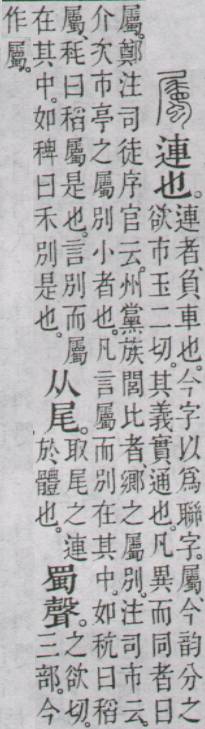 屬 連也。連者、負車也。今字以爲聯字。屬、今韵分之
欲市玉二切。其義實通也。凡異而同者曰
屬。鄭注司徒序官云。州黨族閭比者、鄉之屬別。注司市云。
介次市亭之屬別小者也。凡言屬而別在其中。如秔曰稻
屬、秏曰稻屬是也。言別而屬
在其中。如稗曰禾別是也。
从尾。取尾之連
於體也。
蜀聲。之欲切。
三部。今
作屬。